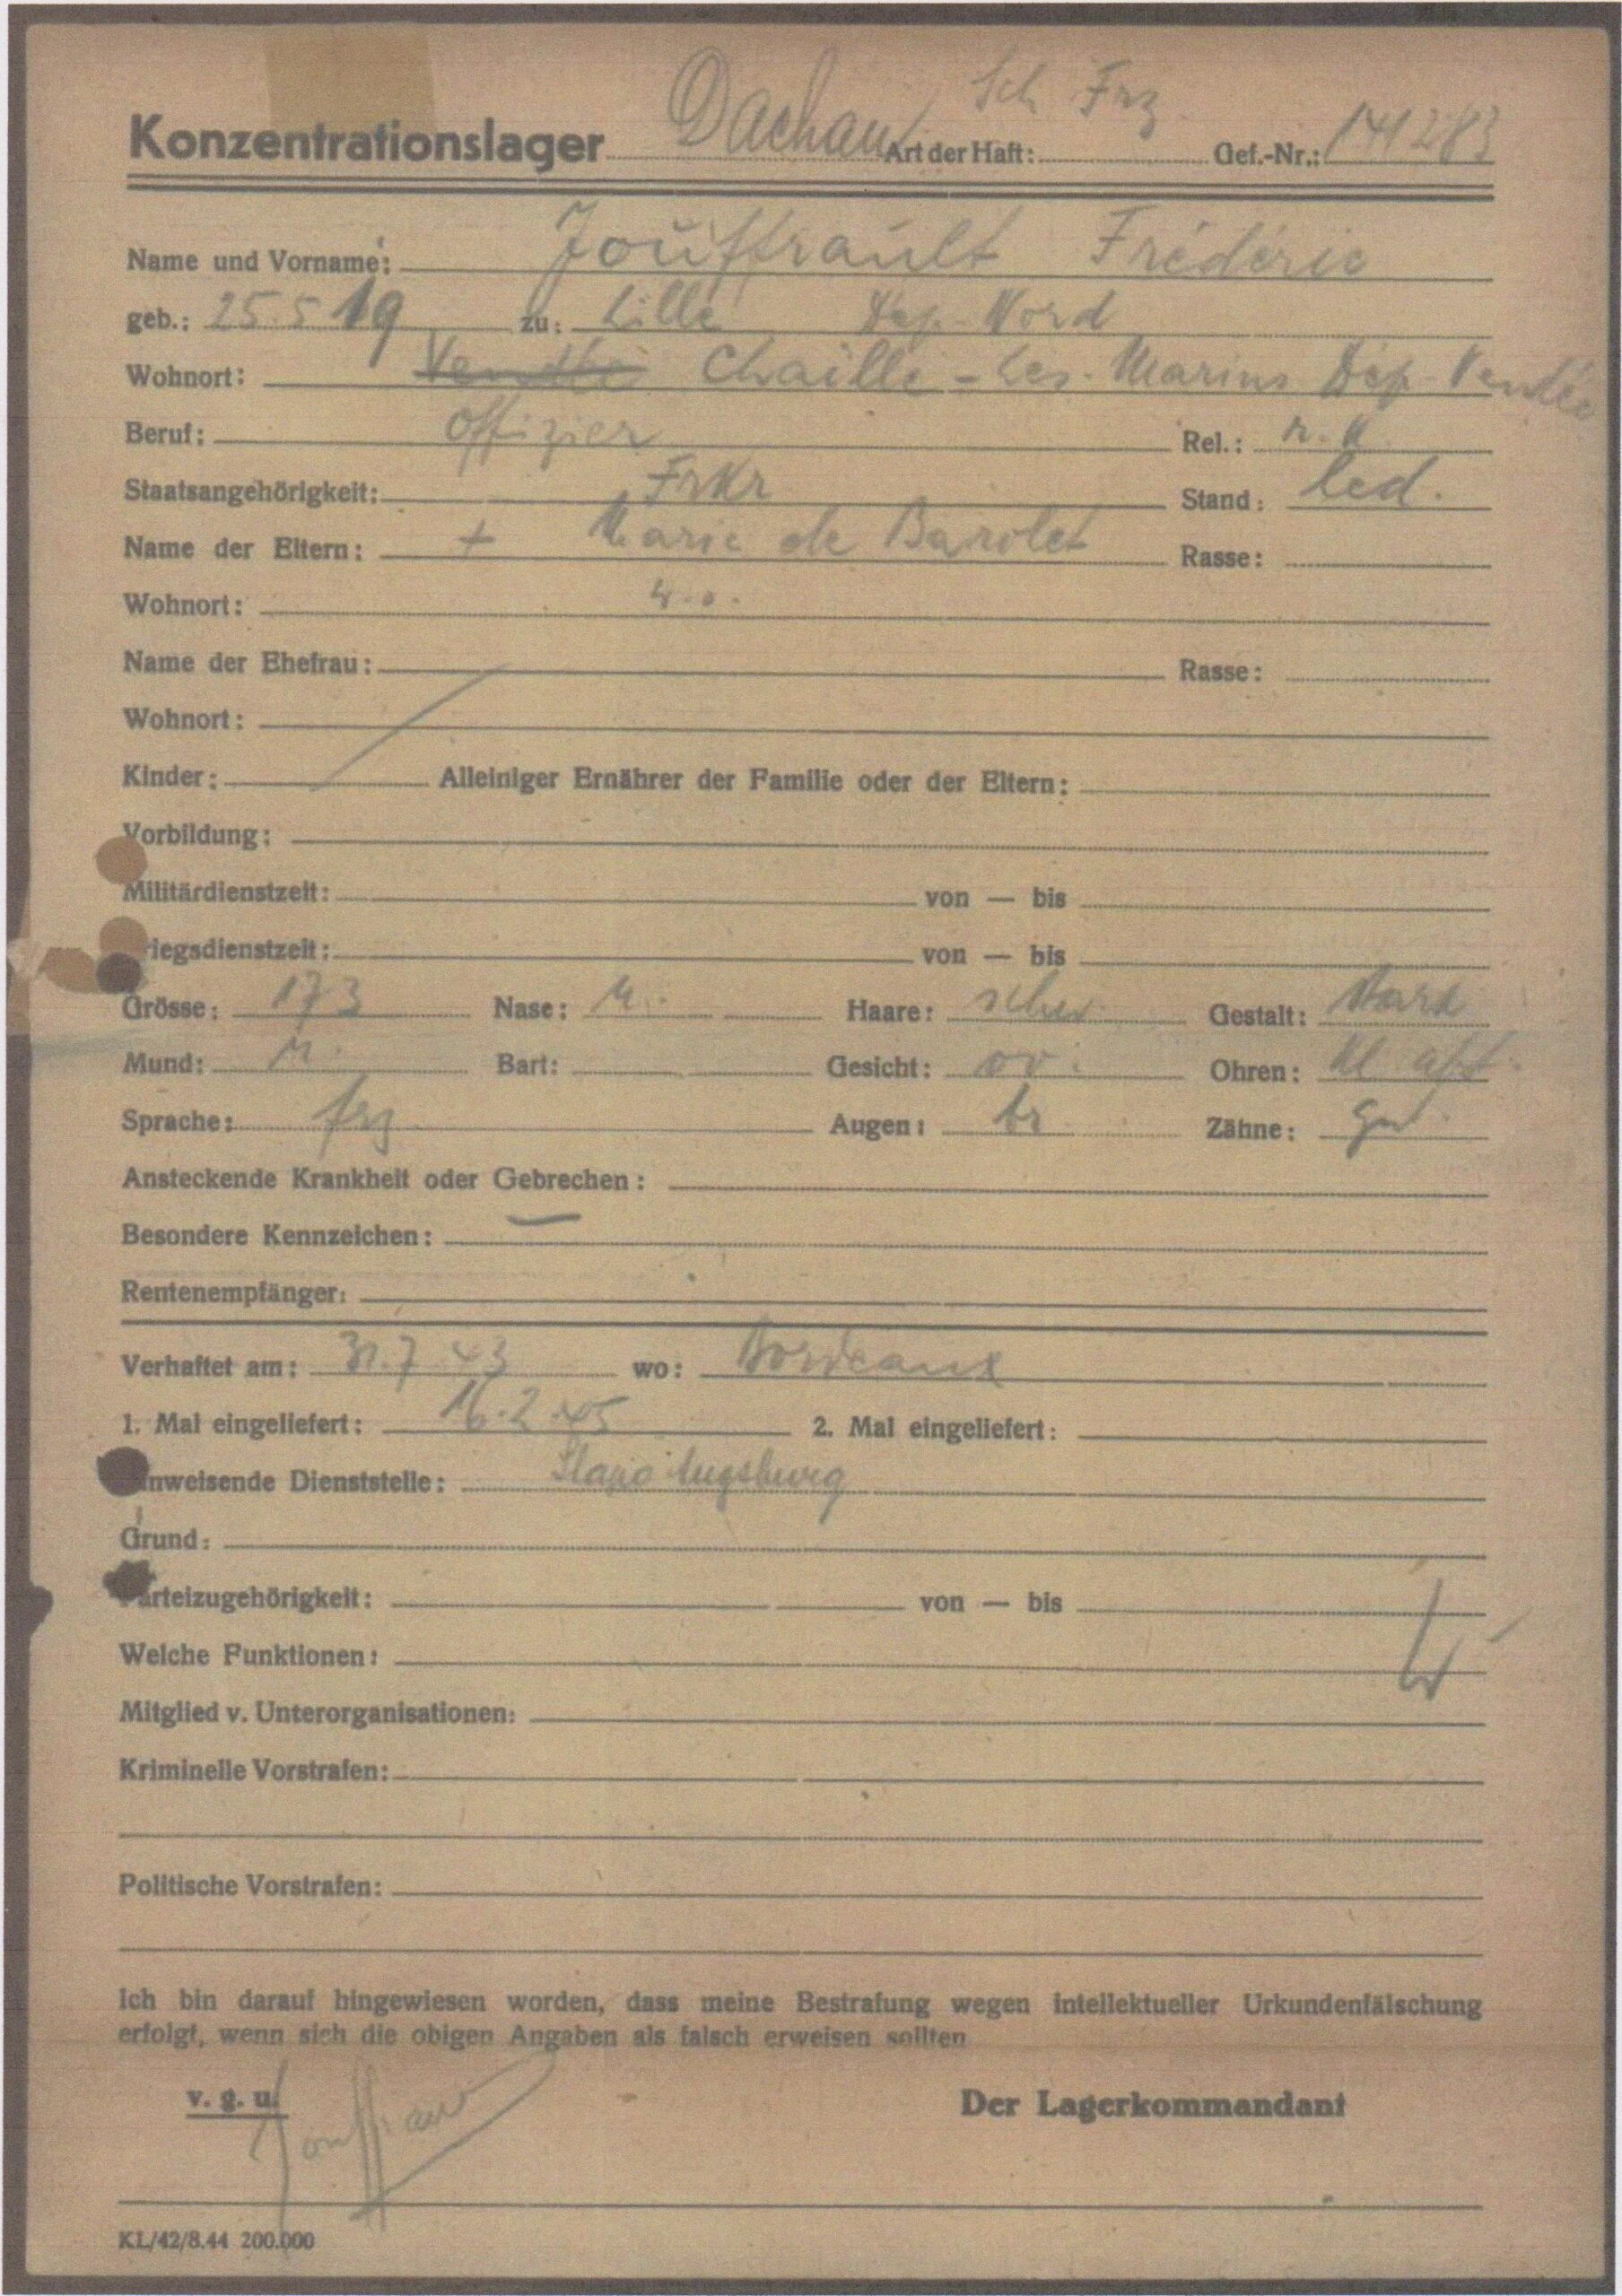 Sch Frz.
Konzentrationslager Dachau Art der Haft: Gef.-Nr.: 141283
Name und Vorname: Jouffrault Fréderic
geb.: 25.5 19 zu: Lille Dep. Nord
Wohnort: Vendée Chaillé-les-Marins Dép-Vendée
Beruf: Offizier Rel.: r. k.
Staatsangehörigkeit: FrKr Stand: led.
Name der Eltern: + Marie de Barolet Rasse:
Wohnort: w.o.
Name der Ehefrau: Rasse:
Wohnort:
Kinder: Alleiniger Ernährer der Familie oder der Eltern:
Vorbildung:
Militärdienstzeit: von — bis
riegsdienstzeit: von — bis
Grösse: 173 Nase: M. Haare: schw. Gestalt: stark
Mund: M. Bart: Gesicht: ov. Ohren: kl. abst.
Sprache: frz Augen: br Zähne: gut
Ansteckende Krankheit oder Gebrechen:
Besondere Kennzeichen: —
Rentenempfänger:
Verhaftet am: 31.7.43 wo: Bordeaux
1. Mal eingeliefert: 16.2.45 2. Mal eingeliefert:
inweisende Dienststelle: Augsburg
Grund:
arteizugehörigkeit: von — bis
Welche Funktionen:
Mitglied v. Unterorganisationen:
Kriminelle Vorstrafen:
Politische Vorstrafen:
Ich bin darauf hingewiesen worden, dass meine Bestrafung wegen intellektueller Urkundenfälschung
erfolgt, wenn sich die obigen Angaben als falsch erweisen sollten
v. g. u. Der Lagerkommandant
KL/42/8.44 200.000